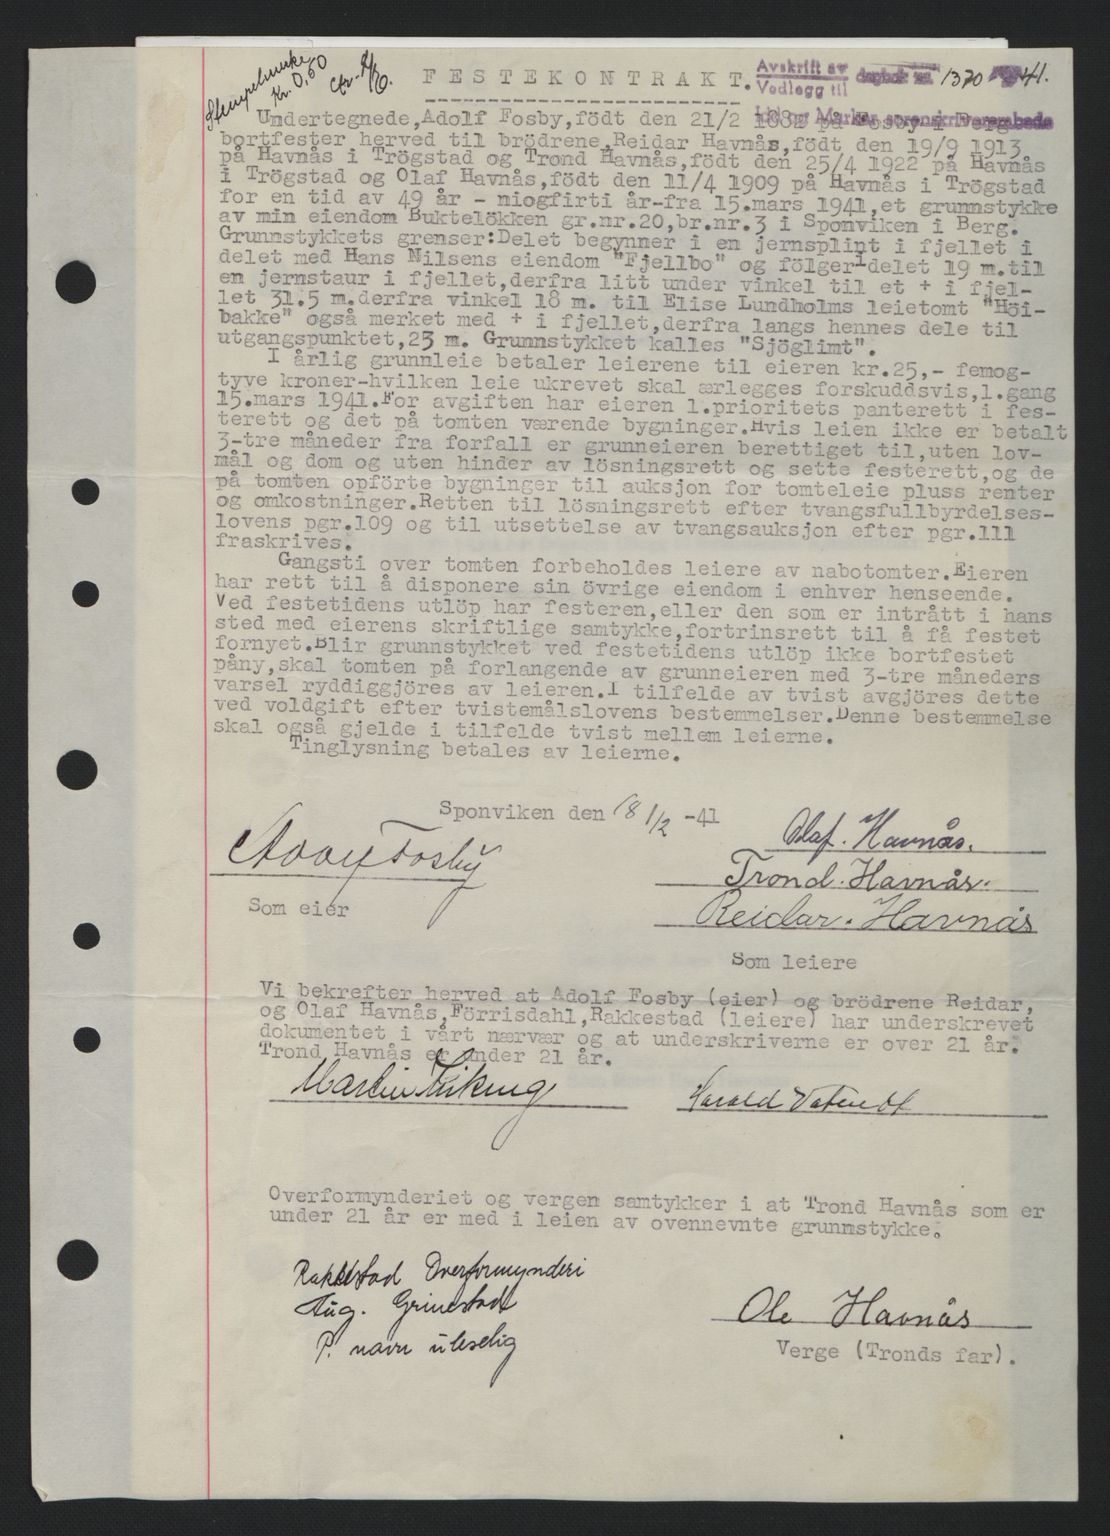 Stempelmerke
Kr. 0,50
F E S T E K O N T R A K T.
Avskrift av dagbok nr. 1370 1941.
Vedlegg til
Idd og Marker sorenskriverembede
Undertegnede,Adolf Fosby,födt den 21/2 1882 på Fosby i Berg
bortfester herved til brödrene,Reidar Havnås,födt den 19/9 1913
på Havnås i Trögstad og Trond Havnås,födt den 25/4 1922 på Havnås
i Trögstad og Olaf Havnås,födt den 11/4 1909 på Havnås i Trögstad
for en tid av 49 år - niogfirti år-fra 15.mars 1941,et grunnstykke
av min eiendom Buktelökken gr.nr.20,br.nr.3 i Sponviken i Berg.
Grunnstykkets grenser:Delet begynner i en jernsplint i fjellet i
delet med Hans Nilsens eiendom "Fjellbo" og fölger i delet 19 m.til
en jernstaur i fjellet,derfra litt under vinkel til et + i fjel-
let 31.5 m.derfra vinkel 18 m. til Elise Lundholms leietomt "Höi-
bakke" også merket med + i fjellet,derfra langs hennes dele til
utgangspunktet,23 m. Grunnstykket kalles "Sjöglimt".
I årlig grunnleie betaler leierene til eieren kr.25,- femog-
tyve kroner-hvilken leie ukrevet skal ærlegges forskuddsvis,1.gang
15.mars 1941.For avgiften har eieren 1.prioritets panterett i fes-
terett og det på tomten værende bygninger.Hvis leien ikke er betalt
3-tre måneder fra forfall er grunneieren berettiget til,uten lov-
mål og dom og uten hinder av lösningsrett og sette festerett,og de
på tomten opförte bygninger til auksjon for tomteleie pluss renter
og omkostninger.Retten til lösningsrett efter tvangsfullbyrdelses-
lovens pgr.109 og til utsettelse av tvangsauksjon efter pgr.111
fraskrives.
Gangsti over tomten forbeholdes leiere av nabotomter.Eieren
har rett til å disponere sin övrige eiendom i enhver henseende.
Ved festetidens utlöp har festeren,eller den som er intrått i hans
sted med eierens skriftlige samtykke,fortrinsrett til å få festet
fornyet.Blir grunnstykket ved festetidens utlöp ikke bortfestet
påny,skal tomten på forlangende av grunneieren med 3-tre måneders
varsel ryddiggjöres av leieren.I tilfelde av tvist avgjöres dette
ved voldgift efter tvistemålslovens bestemmelser.Denne bestemmelse
skal også gjelde i tilfelde tvist mellem leierne.
Tinglysning betales av leierne.
Sponviken den 18 1/2 -41
Olaf. Havnås.
Adolf Fosby
Trond. Havnås.
Som eier
Reidar. Havnås
Som leiere
Vi bekrefter herved at Adolf Fosby (eier) og brödrene Reidar,
og Olaf Havnås,Förrisdahl,Rakkestad (leiere) har underskrevet
dokumentet i vårt nærvær og at underskriverne er over 21 år.
Trond Havnås er under 21 år.
Martin Viking
Harald
Overformynderiet og vergen samtykker i at Trond Havnås som er
under 21 år er med i leien av ovennevnte grunnstykke.
Rakkestad Overformynderi
Aug. Grinestad
P. navn uleselig
Ole Havnås
Verge (Tronds far).